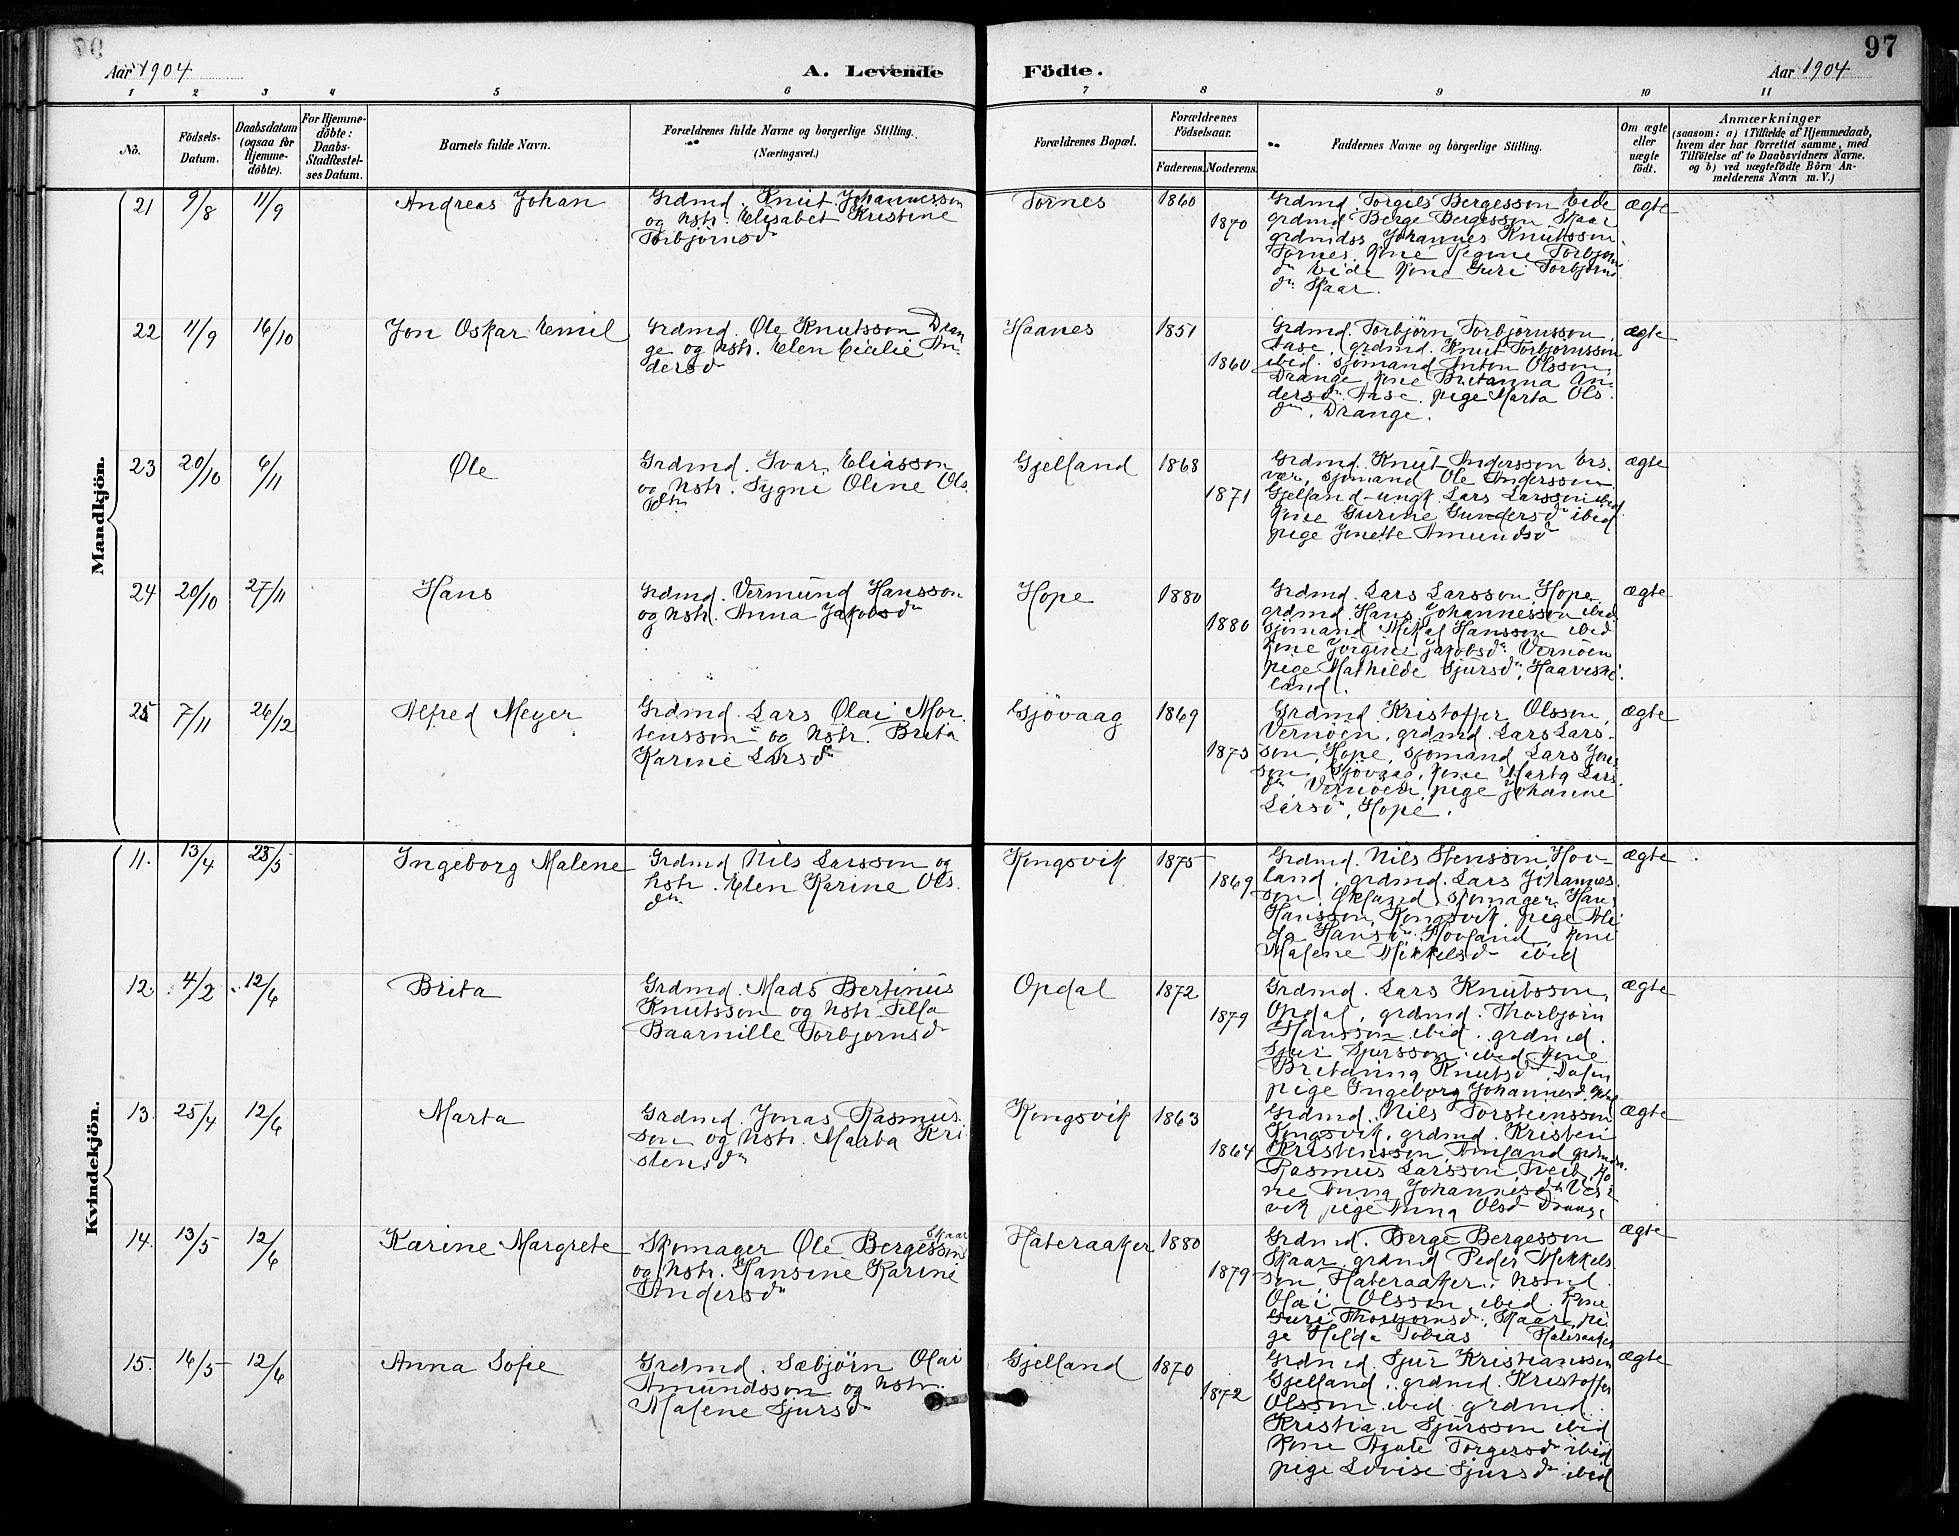 97
Aar 1904
A. Levende
Födte.
Aar 1904
1 2 3 4 5 6 7 8 9 10 11
No.
Födsels-
Datum.
Daabsdatum
(ogsaa for
Hjemme-
döbte).
For Hjemme-
döbte:
Daabs-
Stadfæstel-
ses Datum.
Barnets fulde Navn.
Forældrenes fulde Navne og borgerlige Stilling.
(Næringsvei.)
Forældrenes Bopæl.
Forældrenes
Födselsaar.
Faderens. Moderens.
Faddernes Navne og borgerlige Stilling.
Om ægte
eller
uægte
födt.
Anmærkninger
(saasom: a) i Tilfælde af Hjemmedaab,
hvem der har forrettet samme, med
Tilföielse af to Daabsvidners Navne,
og b) ved uægtefödte Börn An-
melderens Navn m. V.)
Mandkjön.
21 9/8 11/9 Andreas Johan
Grdmd. Knut Johannesson
og hstr. Elisabet Kristine
Torbjörnsdr
Tornes 1860
1870
Grdmd. Torgils Bergesson Eide
grdmd Berge Bergesson Skaar
grdmdss Johannes Knutsson
Tornes. Kone Regine Torbjörns
dr Eide Kone Guri Torbjörns
dr Skaar.
ægte
22 11/9 16/10 Jon Oskar Emil
Grdmd. Ole Knutsson Dran
ge og hstr. Elen Cicilie An-
dersdr
Haanes 1851
1860
Grdmd. Torbjörn Torbjörnsson
Aase, grdmd. Knut Torbjörnsson
ibid. sjömand Anton Olsson,
Drange, Kone Britanna An-
dersdr Aase. pige Marta Ols-
dr, Drange.
ægte
23 20/10 6/11 Ole
Grdmd. Ivar Eliasson
og hstr. Sygni Oline Ols.
dtr
Gjelland 1868
1871
Grdmd. Knut Andersson Ers-
vær, sjömand Ole Andersson
Gjelland - ungk. Lars Larsson ibid
Kone Gurine Gundersdr ibid
pige Jonette Amundsd
ægte
24 20/10 27/11 Hans
Grdmd. Vermund Hansson
og hstr. Anna Jakobsdr
Hope 1880
1880
Grdmd. Lars Larsson Hope
grdmd. Hans Johannesson ibid
sjömand Mikal Hansson ibid
Kone Jörgine Jakobsdr Vernöen
pige Mathilde Sjursdr, Haaveske
land.
ægte
25 7/11 26/12 Alfred Meyer
Grdmd. Lars Olai Mor
tensson og hstr. Brita
Karine Larsdr
Gjövaag 1869
1873
Grdmd. Kristoffer Olsson,
Vernöen, grdmd. Lars Lars-
son, Hope, sjömand Lars Jons-
son, Gjövaag, Kone Marta Lars
dr, Vernöen, pige Johanne
Larsdr, Hope.
ægte
Kvindekjön.
11. 13/4 23/5 Ingeborg Malene
Grdmd Nils Larsson og
hstr. Elen Karine Ols.
dr
Kongsvik 1875
1869
Grdmd. Nils Stensson Hov-
land, grdmd. Lars Johannes
son, Økland, skomager Hans
Hansson, Kongsvik, pige Ali
da Hansdr Hovland, Kone
Malene Mikkelsdr ibid
ægte
12. 4/2 12/6 Brita
Grdmd. Mads Bertinius
Knutsson og hstr. Tilla
Baarnille Torbjornsdr
Opdal 1872
1879
Grdmd. Lars Knutsson,
Opdal, grdmd. Thorbjörn
Hansson ibid. grdmd.
Sjur Sjursson ibid Kone
Britanna Knutsdr
pige Ingeborg Johannesd
ægte
13. 25/4 12/6 Marta
Grdmd. Jonas Rasmus
son og hstr. Marta Kri
stensdr
Kongsvik 1863
1864
Grdmd. Nils Torsteinsson
Kongsvik, grdmd. Kristen
Kristensson grdmd.
Rasmus Larsson Tveit, Ko
ne Anna Johannesdr Ves
vik pige Anna Olsd Drange
ægte
14. 13/5 12/6 Karine Margrete
Skomager Ole Bergesson Skaar
og hstr. Hansine Karine
Andersdr
Hateraaker 1880
1879
Grdmd. Berge Bergesson
Skaar, grdmd Peder Mikkels
son Hateraaker, hsmd
Olai Olsson, ibid. Kone
Guri Thorbjornsdr, Skaar, pi
ge Hilda Tobias Hateraaker
ægte
15. 16/5 12/6 Anna Sofie
Grdmd. Sæbjörn Olai
Amundsson og hstr.
Malene Sjursdr
Gjelland 1870
1872
Grdmd. Sjur Kristiansson
Gjelland, grdmd. Kristoffer
Olsson ibid grdmd.
Kristian Sjursson ibid
Kone Agate Torgersdr ibid
pige Lovise Sjursdr ibid
ægte